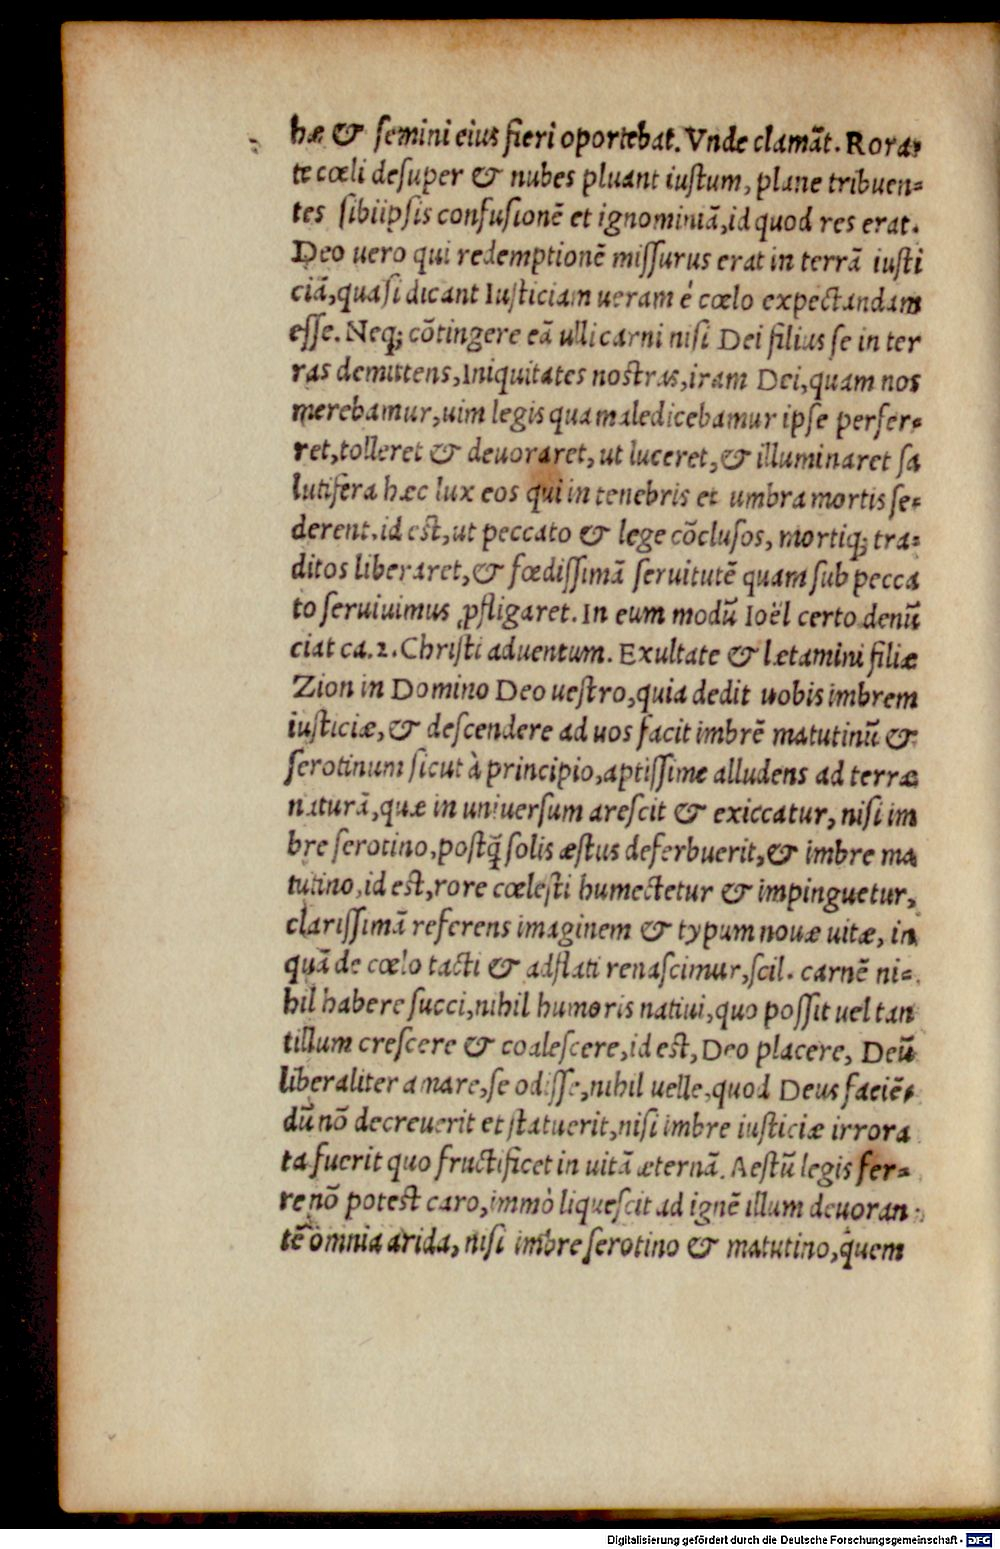 hæ & ſemini eius fieri oportebat. Vnde clamãt. Rora-
te cœli deſuper & nubes pluant iuſtum, plane tribuen-
tes ſibiipſis confuſionẽ et ignominiã, id quod res erat.
Deo uero qui redemptionẽ miſſurus erat in terrã iuſti
ciã, quaſi dicant Iuſticiam ueram é cœlo expectandam
eſſe. Neq; cõtingere eã ulli carni niſi Dei filius ſe in ter
ras demittens, Iniquitates noſtras, iram Dei, quam nos
merebamur, uim legis qua maledicebamur ipſe perfer-
ret, tolleret & deuoraret, ut luceret, & illuminaret ſa
lutifera hæc lux eos qui in tenebris et umbra mortis ſe-
derent. id eſt, ut peccato & lege cõcluſos, mortiq; tra-
ditos liberaret, & fœdiſſimã ſeruitutẽ quam ſub pecca
to ſeruiuimus ꝓfligaret. In eum modũ Ioël certo denũ
ciat ca. 2. Chriſti aduentum. Exultate & lætamini filiæ
Zion in Domino Deo ueſtro, quia dedit uobis imbrem
iuſticiæ, & deſcendere ad uos facit imbrẽ matutinũ &
ſerotinum ſicut à principio, aptiſſime alludens ad terræ
naturã, quæ in uniuerſum areſcit & exiccatur, niſi im
bre ſerotino, poſtq̃ ſolis æſtus deferbuerit, & imbre ma
tutino, id eſt, rore cœleſti humectetur & impinguetur,
clariſſimã referens imaginem & typum nouæ uitæ, in
quã de cœlo tacti & adflati renaſcimur, ſcil. carnẽ ni-
hil habere ſucci, nihil humoris natiui, quo poſſit uel tan
tillum creſcere & coaleſcere, id eſt, Deo placere, Deũ
liberaliter amare, ſe odiſſe, nihil uelle, quod Deus faciẽ-
dũ nõ decreuerit et ſtatuerit, niſi imbre iuſticiæ irrora
ta fuerit quo fructificet in uitã æternã. Aeſtũ legis fer-
re nõ poteſt caro, immò liqueſcit ad ignẽ illum deuoran
tẽ omnia arida, niſi imbre ſerotino & matutino, quem
Digitalisierung gefördert durch die Deutsche Forschungsgemeinschaft - DFG